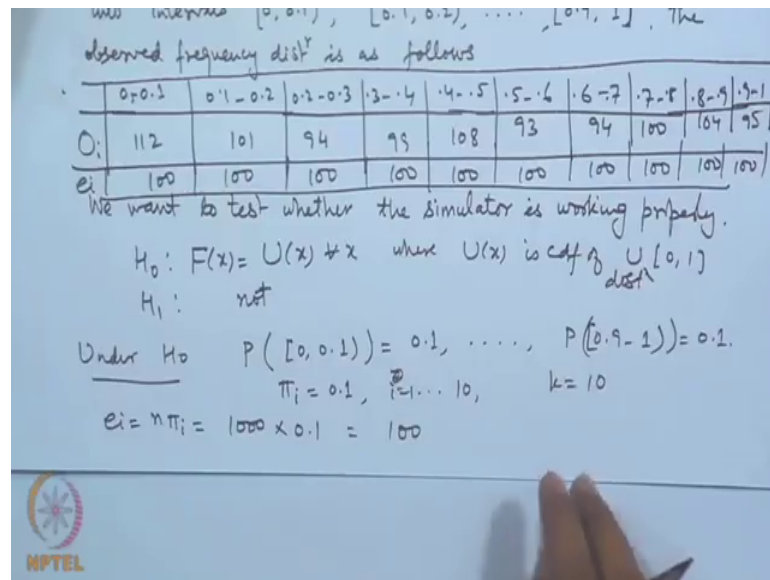 into intervals [0, 0.1), [0.1, 0.2), ...., [0.9, 1]. The
observed frequency distⁿ is as follows
0-0.1 0.1-0.2 0.2-0.3 .3-.4 .4-.5 .5-.6 .6-.7 .7-.8 .8-.9 .9-1
Oi 112 101 94 99 108 93 94 100 104 95
ei 100 100 100 100 100 100 100 100 100 100
We want to test whether the simulator is working properly.
H₀: F(x) = U(x) ∀ x where U(x) is cdf of U[0, 1]
distⁿ
H₁: not
Under H₀ P([0, 0.1)) = 0.1, ...., P([0.9-1)) = 0.1.
πi = 0.1, i=1...10, k=10
ei = nπi = 1000 × 0.1 = 100
NPTEL